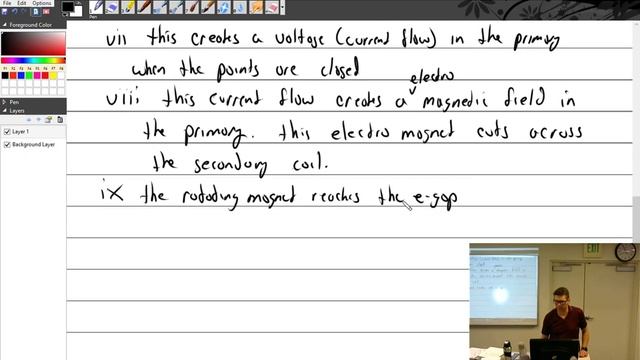 File Edit Options Help
Pen
Foreground Color
Pen
Layers
Layer 1
Background Layer
vii this creates a voltage (current flow) in the primary
when the points are closed
electro
viii this current flow creates a magnetic field in
the primary. this electro magnet cuts across
the secondary coil.
ix the rotating magnet reaches the e-gap